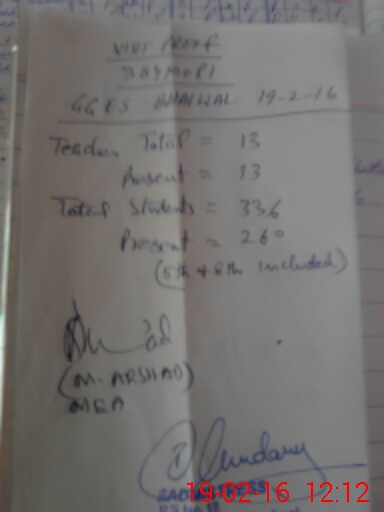 VISIT PROOF
GGES BHALWAL 19-2-16
Teacher Total = 13
Present = 13
Total Students = 336
Present = 260
(5th & 8th included)
(M. ARSHAD)
MEA
19-02-16 12:12